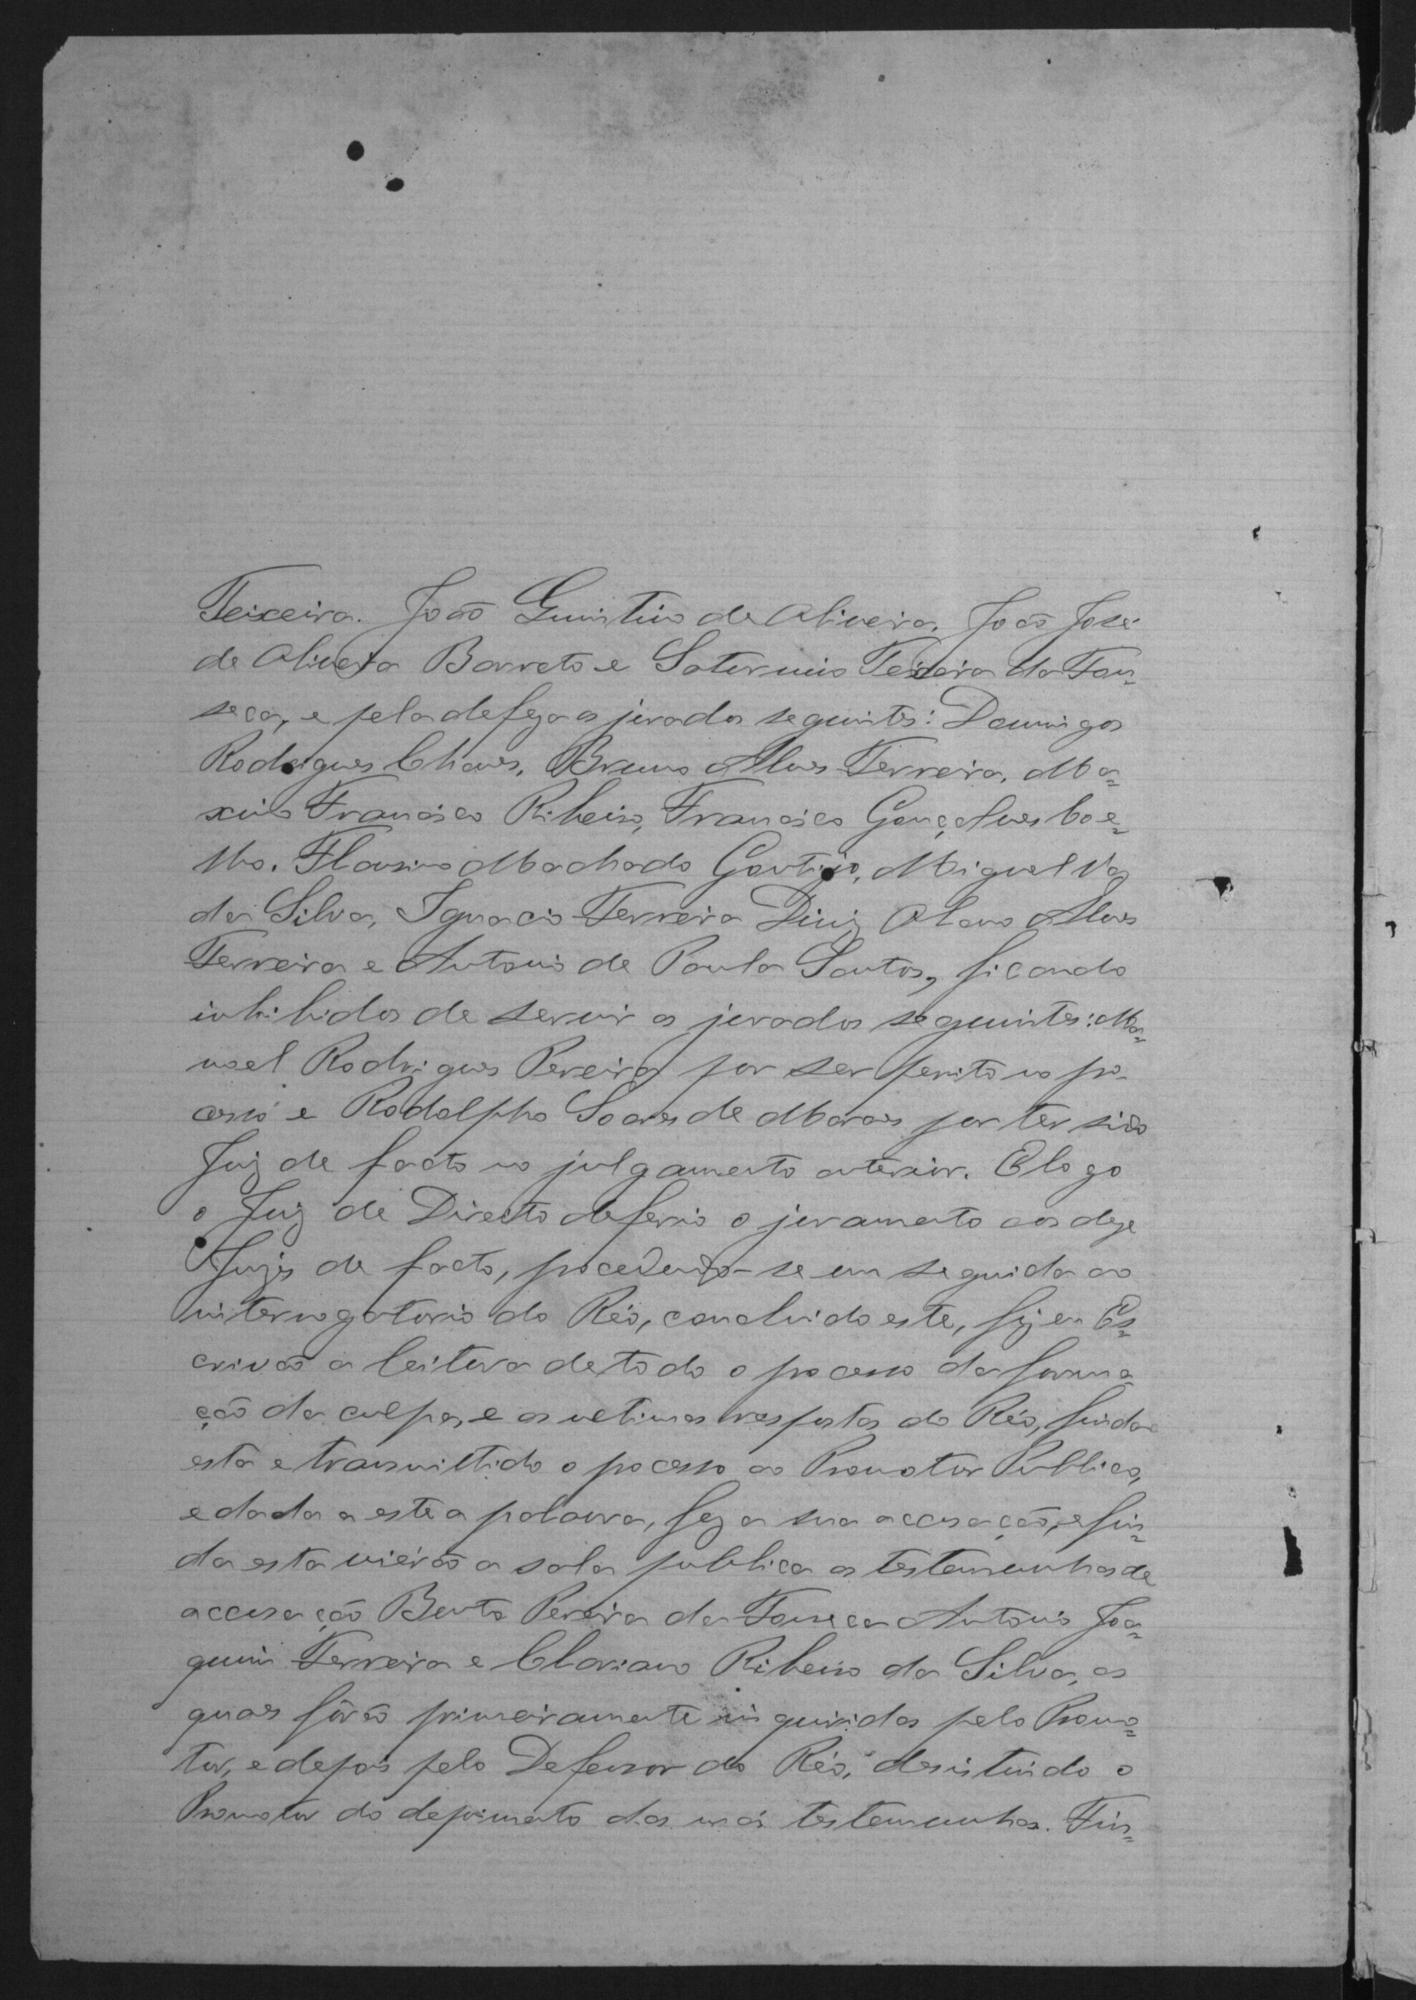 Teixeira. João Quintino de Oliveira. João José
de Oliveira Barreto e Saternino Teixeira da Fon=
seca, e pela defeza os jurados seguintes: Domingos
Rodrigues Chaves, Bruno Alves Ferreira, Ma=
ximo Francisco Ribeiro, Francisco Gonçalves Coe=
lho. Flausino Machado Gontijo, Miguel Vaz
da Silva, Ignacio Ferreira Diniz Olavo Alves
Ferreira e Antonio de Paula Santos, ficando
inhibidos de servir os jurados seguintes: Ma=
noel Rodrigues Pereira por ser perito no pro-
cesso e Rodolpho Soares de Moraes por ter sido
Juiz de facto no julgamento anterior. E logo
o Juiz de Direito deferio o juramento aos doze
Juizes de facto, procedendo-se em seguida ao
interrogatorio do Réo, concluido este, fiz eu Es=
crivão a leitura de todo o processo da forma=
ção da culpa, e as ultimas respostas do Réo, finda
esta e transmittido o processo ao Promotor Publico,
e dada a este a palavra, fez a sua accusação, e fin=
da esta vierão a sala publica as testemunhas de
accusação Bento Pereira da Fonseca Antonio Joa=
quim Ferreira e Clariano Ribeiro da Silva, as
quaes fôrão primeiramente inquiridas pelo Promo=
tor, e depois pelo Defensor do Réo, desistindo o
Promotor do depoimento das mais testemunhas. Fin=